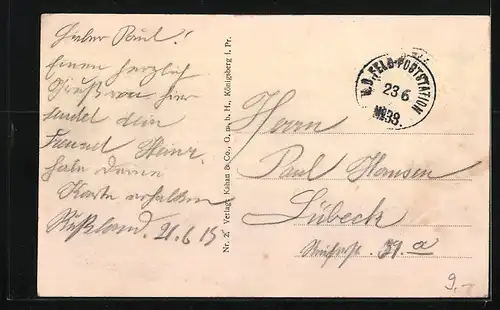 Lieber Paul!
Einen herzlich
Gruß von hier
sendet dein
Freund Heinz.
habe deine
Karte erhalten
Rußland. 21.6.15
Nr. 2. Verlag: Kahan & Co., G. m. b. H., Königsberg i. Pr.
K.D. FELD-POSTSTATION
23 6
No 38.
Herrn
Paul Hansen
Lübeck
39. a
9.-